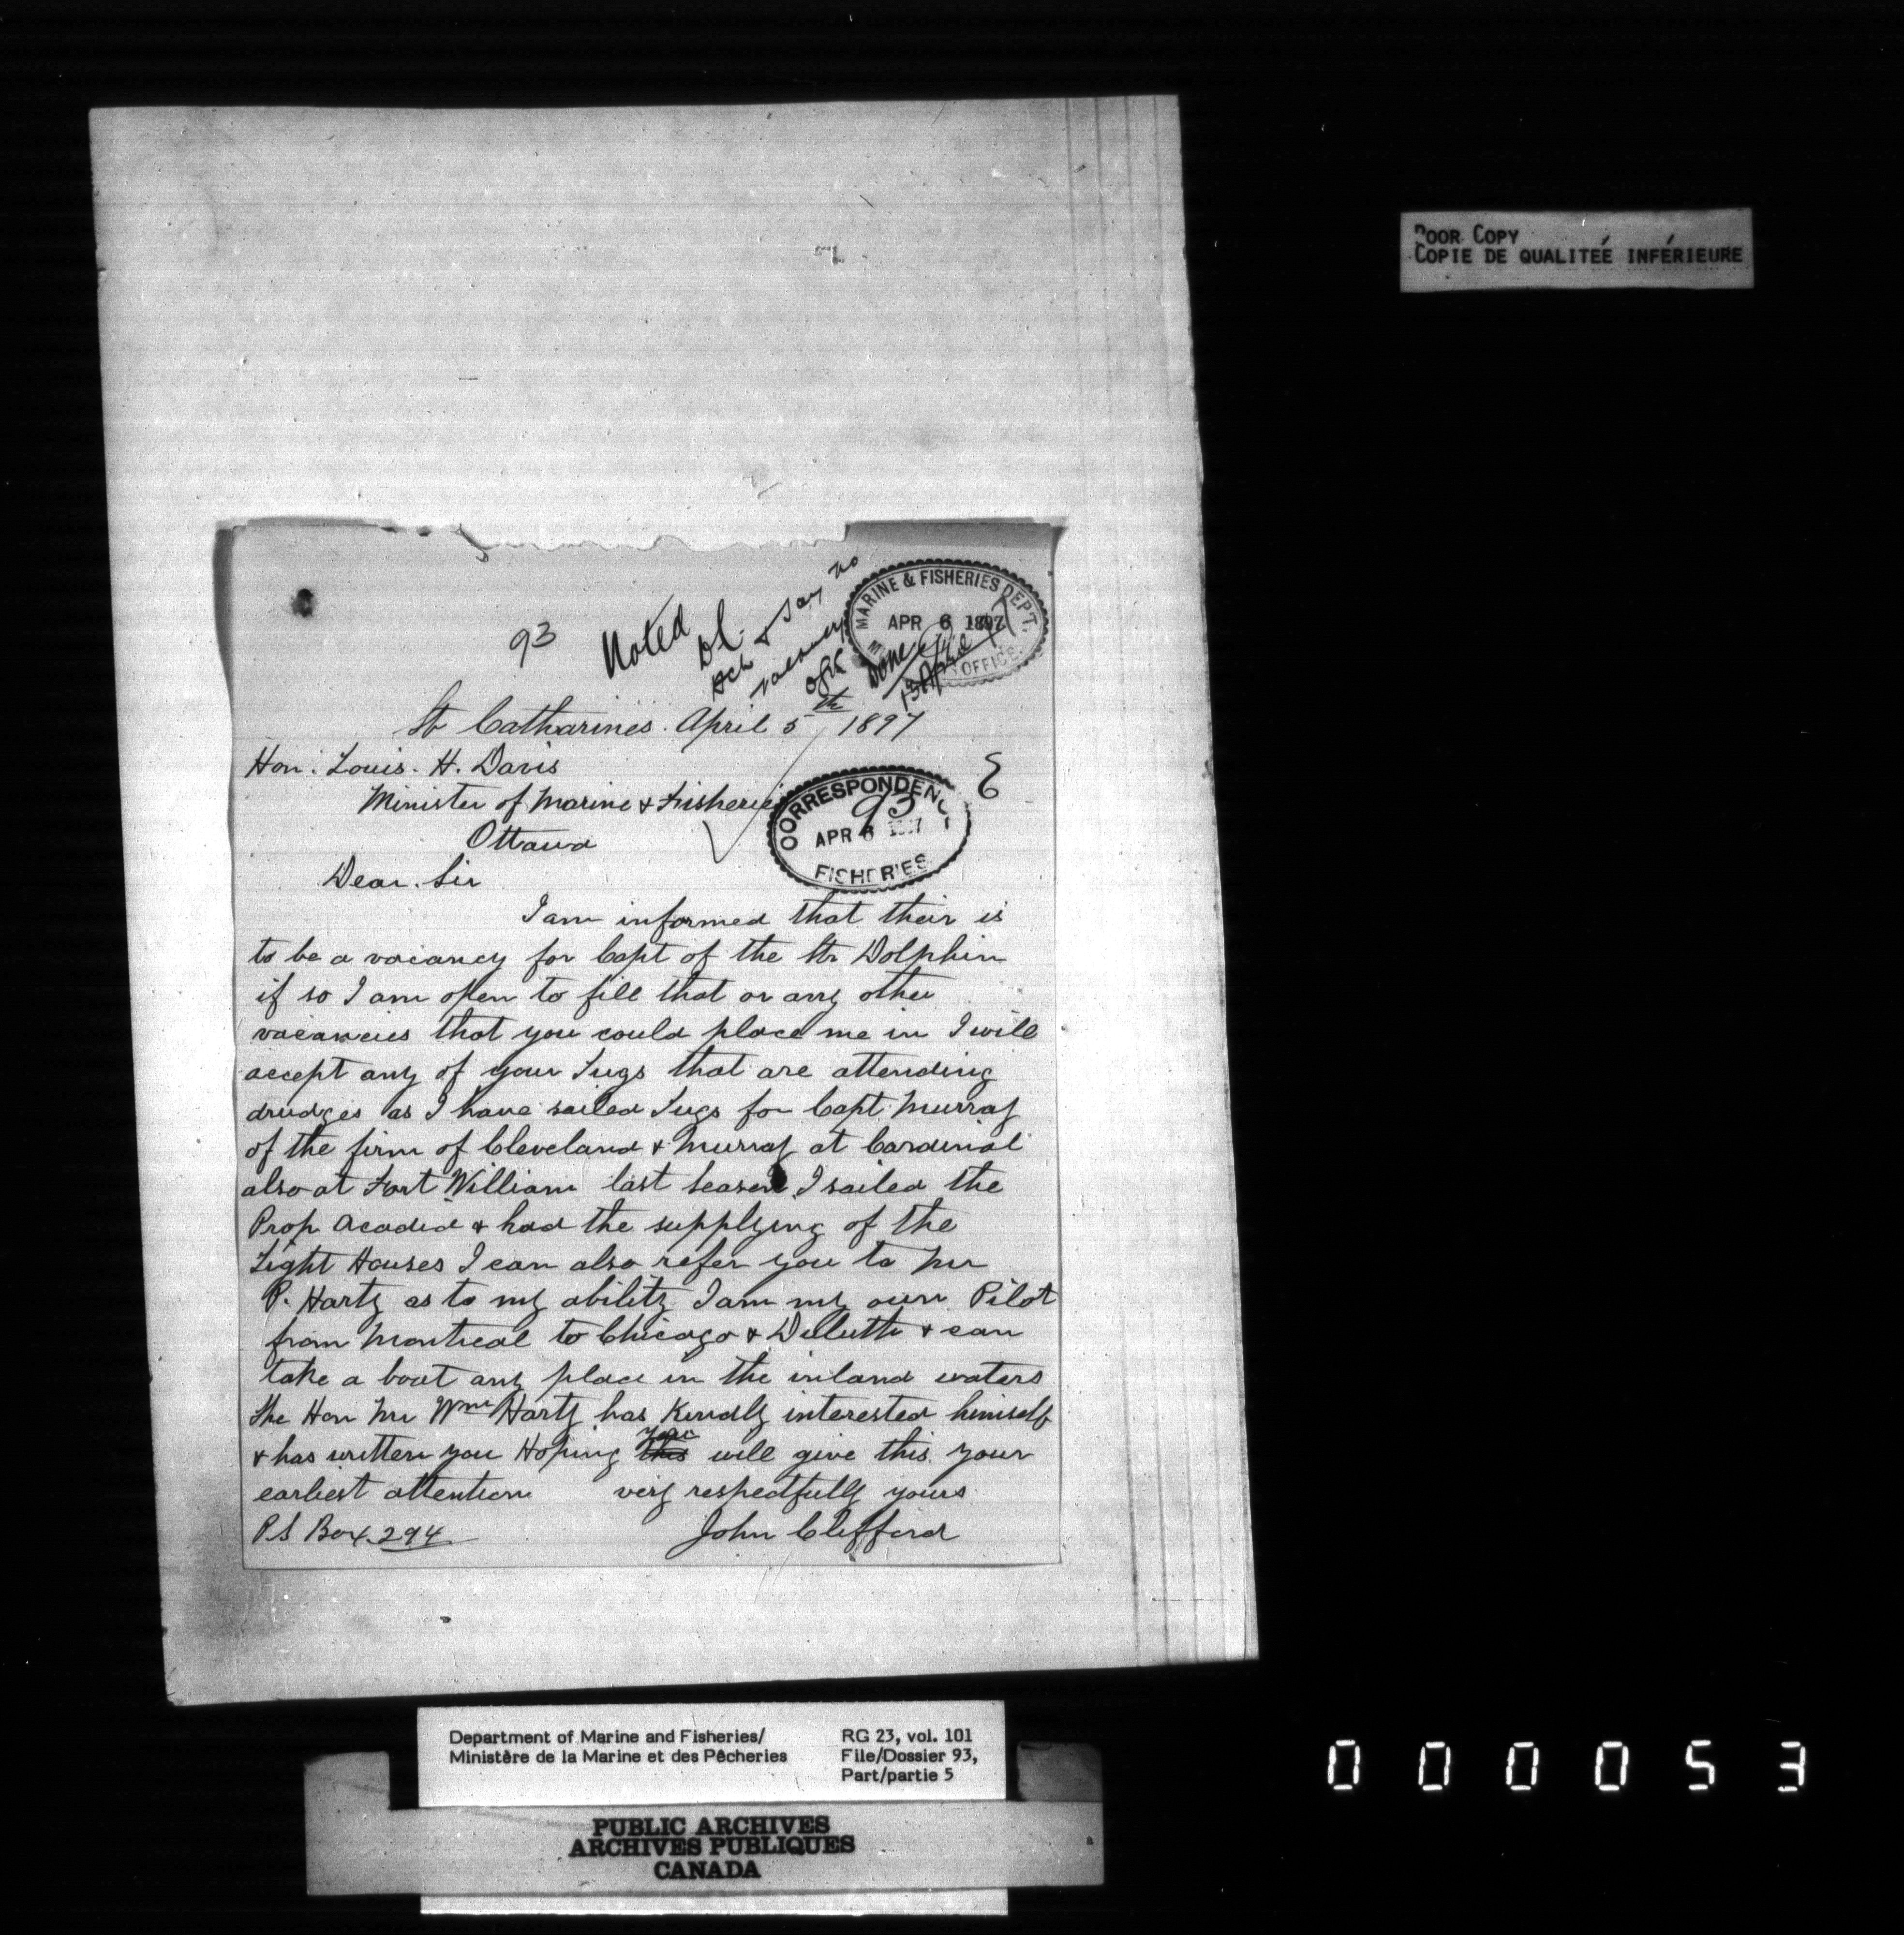 POOR COPY
COPIE DE QUALITEÉ INFÉRIEURE
93
Noted
Ack & say no
vacancy
MARINE & FISHERIES DEPT.
APR 6 1897
OFFICE
Done
St Catharines. April 5th 1897
Hon. Louis. H. Davis
Minister of Marine & Fisheries
Ottawa
CORRESPONDENC
93
APR 6 1897
FISHERIES
Dear. Sir
I am informed that their is
to be a vacancy for Capt of the Str Dolphin
if so I am open to fill that or any other
vacancies that you could place me in I will
accept any of your Tugs that are attending
drudges as I have sailed Tugs for Capt Murray
of the firm of Cleveland & Murray at Cardinal
also at Fort William last season I sailed the
Prop Acadia & had the supplying of the
Light Houses I can also refer you to Mr
P. Harty as to my ability I am my own Pilot
from Montreal to Chicago & Duluth & can
take a boat any place in the inland waters
the Hon Mr Wm Harty has Kindly interested himself
& has written you Hoping this you will give this your
earliest attention very respectfully yours
P.S Box 294 John Clifford
Department of Marine and Fisheries/
Ministère de la Marine et des Pêcheries
RG 23, vol. 101
File/Dossier 93,
Part/partie 5
PUBLIC ARCHIVES
ARCHIVES PUBLIQUES
CANADA
000053